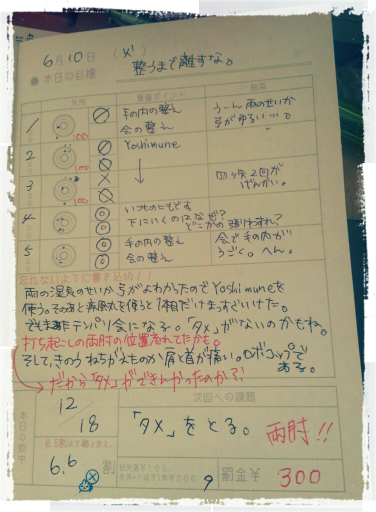 6月10日
整うまで離すな。
●本日の目標
矢所
重要ポイント
結果
1
手の内の整え
会の整え
うーん雨のせいか
弓がゆるい…。
100
2
Yoshimune
100
3
四ヶ矢2回が
げんかい。
100
4
いつものにもどす
下にいくのはなぜ?
どこかの張りわすれ?
5
手の内の整え
会の整え
会で手の内が
うごく。へん。
忘れないように書き足切!!
雨の湿気のせいか弓がよわかったのでYoshimuneを
使う。
でもまあテンパリ会になる。「タメ」がないのかもね。
打ち起こしの両肘の位置忘れてたかも。
そして、きのうねちがえたのか肩と首が痛い。ロボコップで
ある。
だから「タメ」ができんかったのか?!
本日の的中
12
18
6.6
割
次回への課題
「タメ」をとる。
両肘!!
9
罰金¥
300